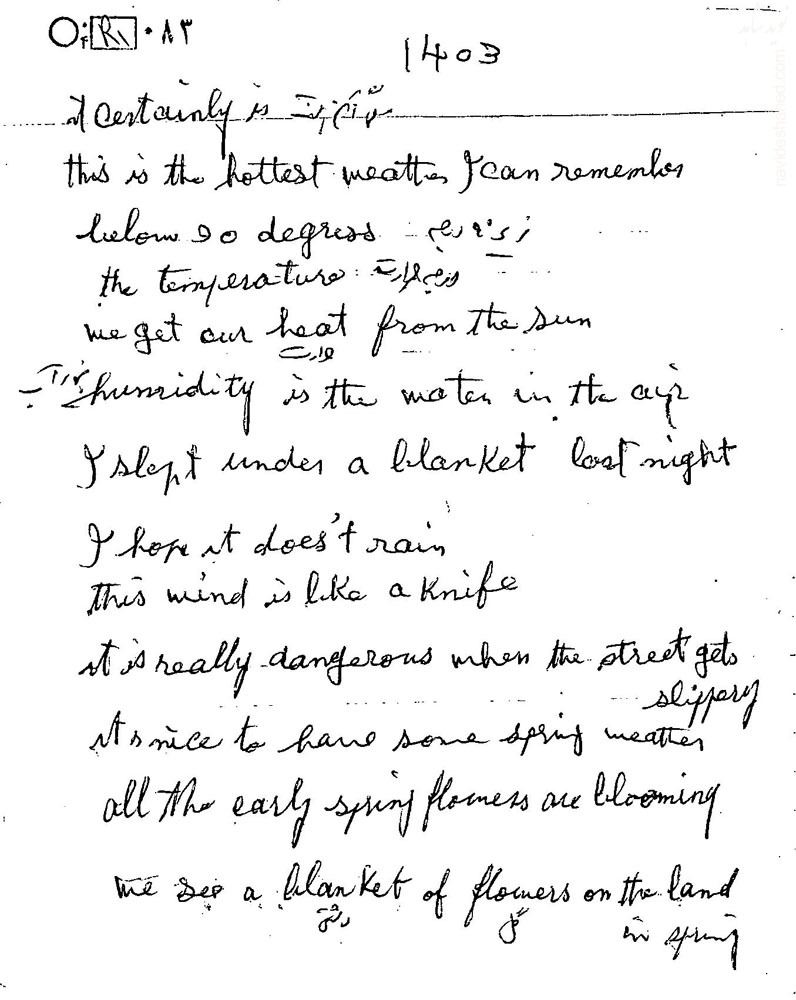 ۰۸۳
1403
it certainly is
this is the hottest weather I can remember
below 90 degress زیر ۹۰ درجه
the temperature درجه حرارت
we get our heat from the sun
حرارت
humidity is the water in the air
I slept under a blanket last night
I hope it does't rain
this wind is like a knife
it is really dangerous when the street gets
slippery
it s nice to have some spring weather
all the early spring flowers are blooming
we see a blanket of flowers on the land
گل in spring